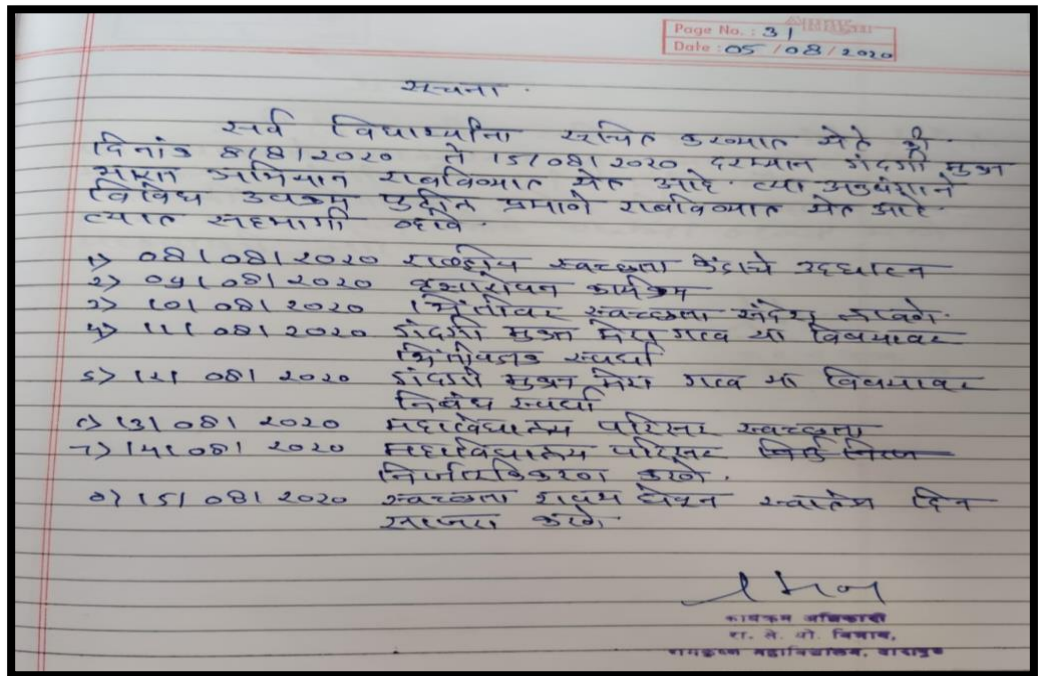 Page No. : 31
Date : 05 / 08 / 2020
सूचना.
सर्व विद्यार्थ्यांना सूचित करण्यात येते की
दिनांक 8/8/2020 ते 15/08/2020 दरम्यान गंदगी मुक्त
भारत अभियान राबविण्यात येत आहे. त्या अनुषंगाने
विविध उपक्रम पुढील प्रमाणे राबविण्यात येत आहे.
त्यात सहभागी व्हावे.
१) 08/08/2020 राष्ट्रीय स्वच्छता केंद्राचे उद्घाटन
२) 09/08/2020 वृक्षारोपन कार्यक्रम
३) 10/08/2020 भिंतीवर स्वच्छता संदेश लावणे.
४) 11/08/2020 गंदगी मुक्त मेरा गाव या विषयावर
भित्तीपत्रक स्पर्धा
५) 12/08/2020 गंदगी मुक्त मेरा गाव या विषयावर
निबंध स्पर्धा
६) 13/08/2020 महाविद्यालय परिसर स्वच्छता
७) 14/08/2020 महाविद्यालय परिसर
निर्जंतुकिकरण करणे.
८) 15/08/2020 स्वच्छता शपथ घेवून स्वातंत्र्य दिन
साजरा करणे.
कार्यक्रम अधिकारी
रा. से. यो. विभाग,
रामकृष्ण महाविद्यालय, दारापुर